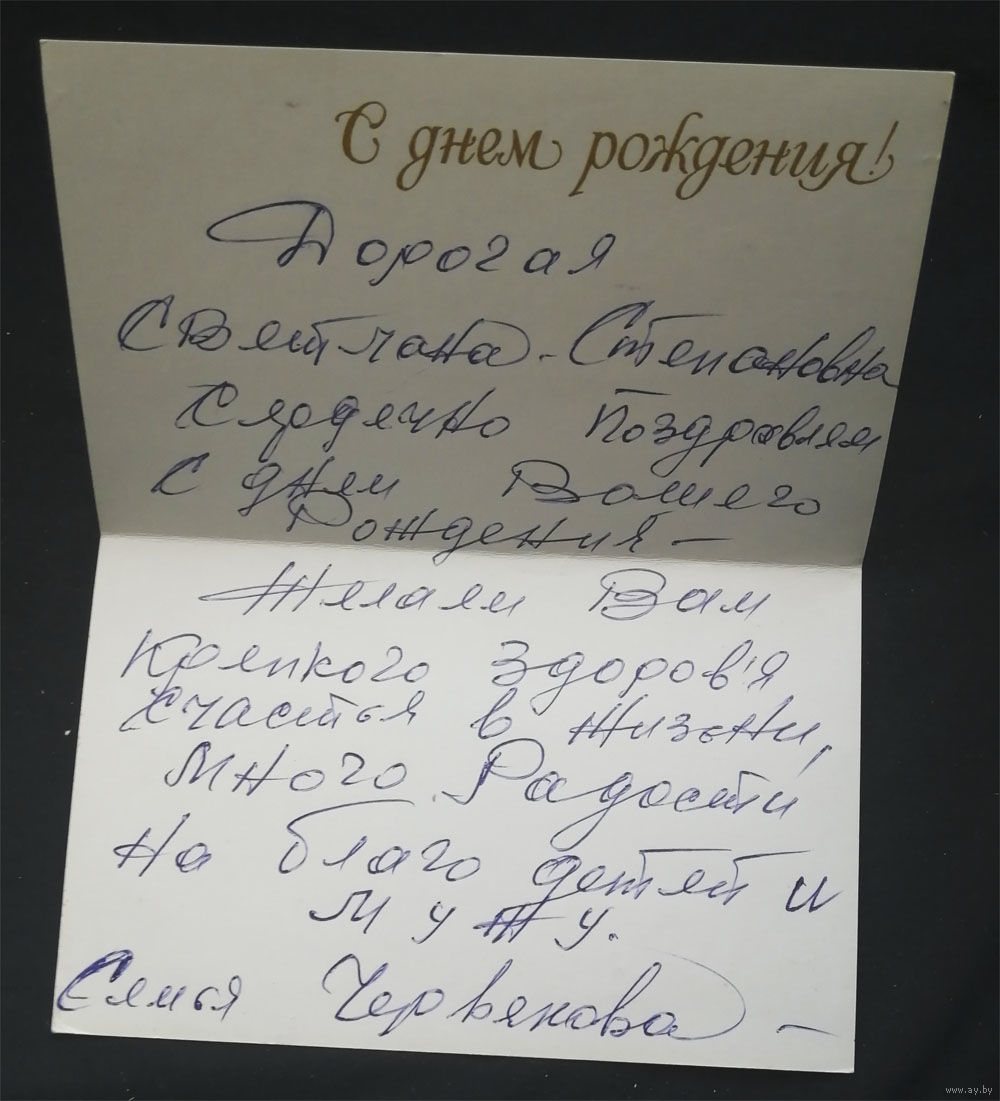 С днем рождения!
Дорогая
Светлана - Степановна
Сердечно Поздравляем
с днем Вашего
Рождения —
Желаем Вам
Крепкого здоров'я
счастья в жизни,
много Радости
на благо детей и
мужу.
Семья Червякова —
www.ay.by